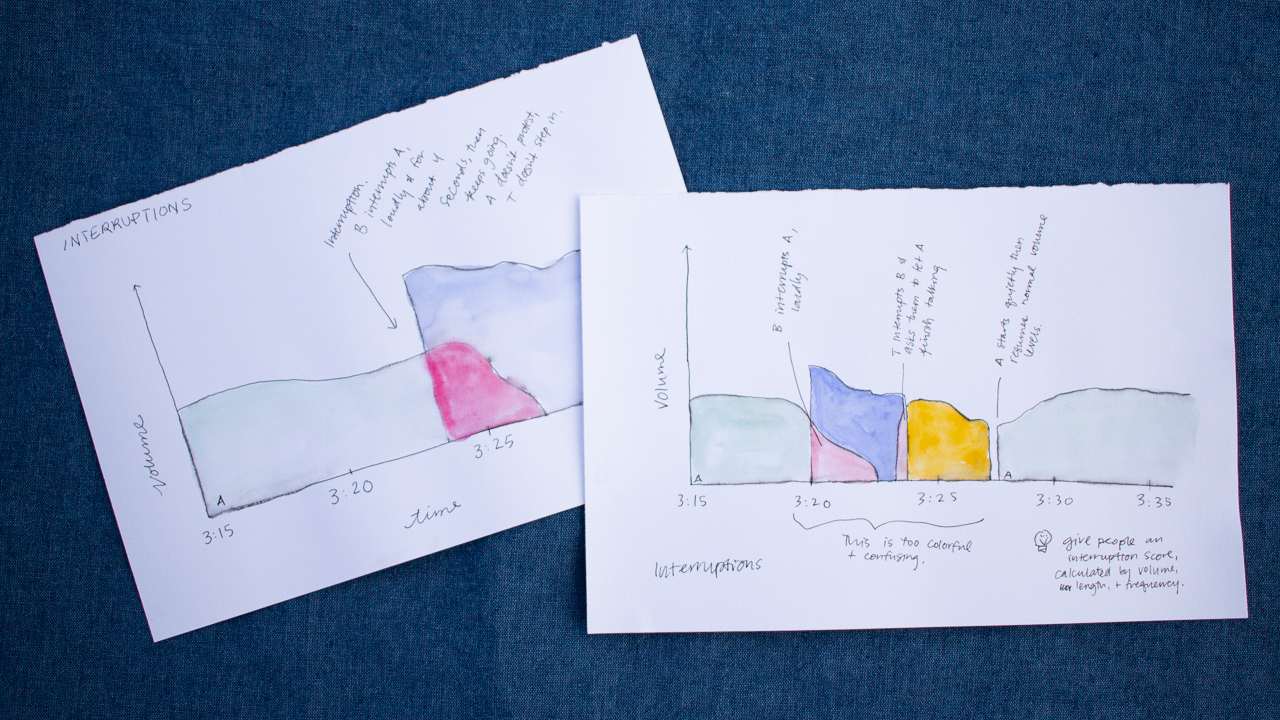 INTERRUPTIONS
Interruption.
B interrupts A,
loudly & for
about 4
seconds, then
keeps going.
A doesn't protest,
T doesn't step in.
Volume
A
3:15
3:20
3:25
time
Volume
B interrupts A,
loudly
T interrupts B &
asks them to let A
finish talking
A starts quietly then
resumes normal volume
levels.
A
A
3:15
3:20
3:25
3:30
3:35
This is too colorful
+ confusing.
Interruptions
give people an
interruption score,
calculated by volume,
length, + frequency.